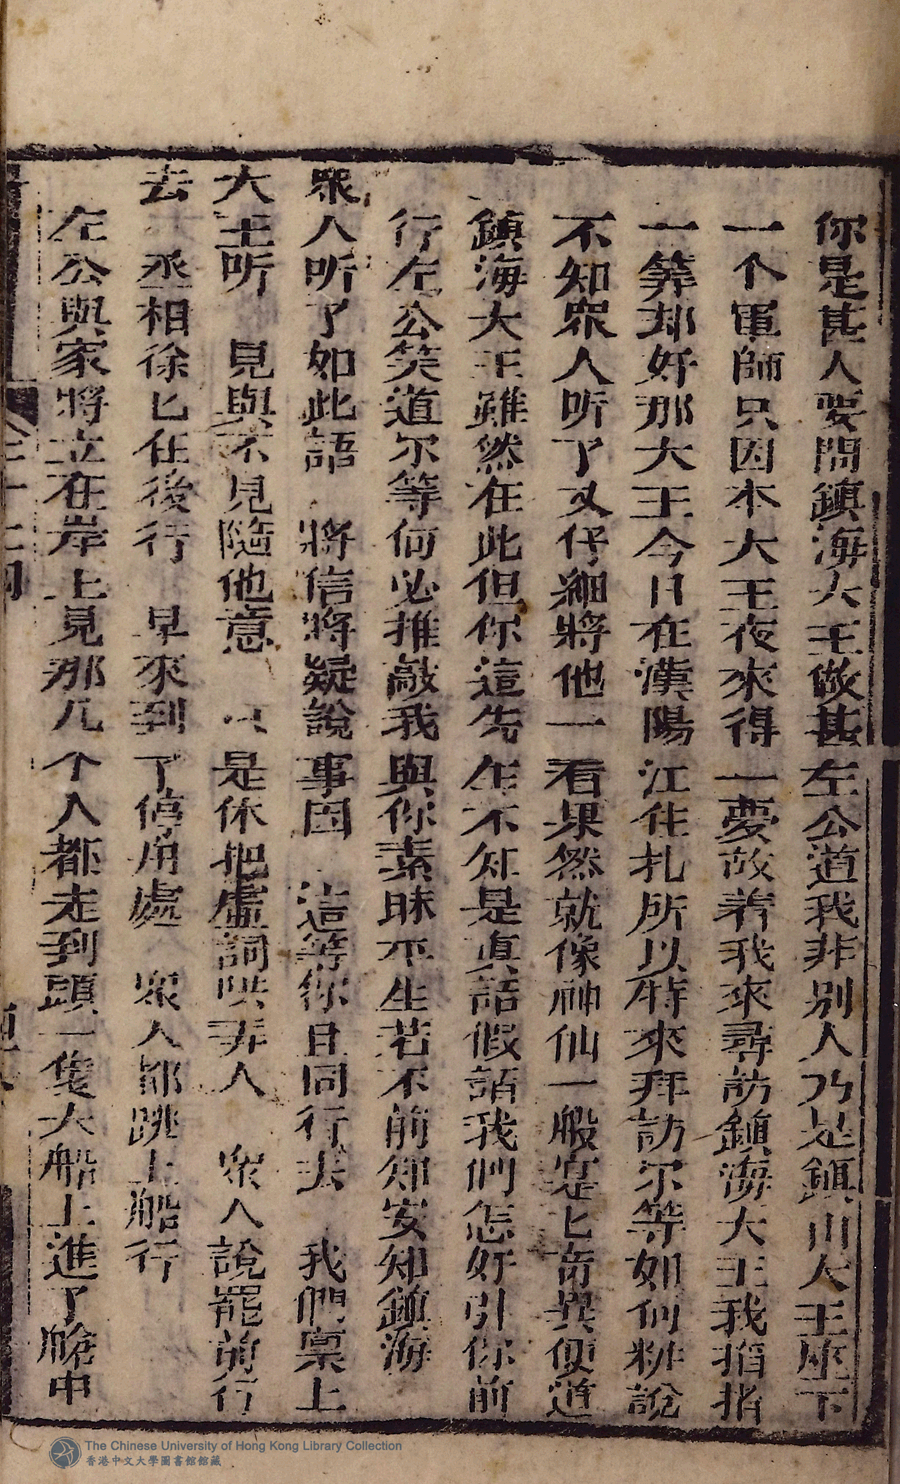 你是甚人要問鎮海大王做甚左公道我非別人乃是鎮山大王座下
一个軍師只因本大王夜來得一夢故着我來尋訪鎮海大王我掐指
一筭却好那大王今日在漢陽江住扎所以特來拜訪尔等如何粧說
不知眾人听了又仔細將他一看果然就像神仙一般寔匕奇異便道
鎮海大王雖然在此但你這先生不知是真話假話我們怎好引你前
行左公笑道尔等何必推敲我與你素昧平生若不前知安知鎮海
眾人听了如此語 將信將疑說事因 這等你且同行去 我們稟上
大王听 見與不見隨他意 只是休把虛詞哄弄人 眾人說罷前行
去 丞相徐匕在後行 早來到了停舟處 眾人都跳上船行
左公與家將立在岸上見那几个人都走到頭一隻大船上進了艙中
The Chinese University of Hong Kong Library Collection
香港中文大學圖書館館藏